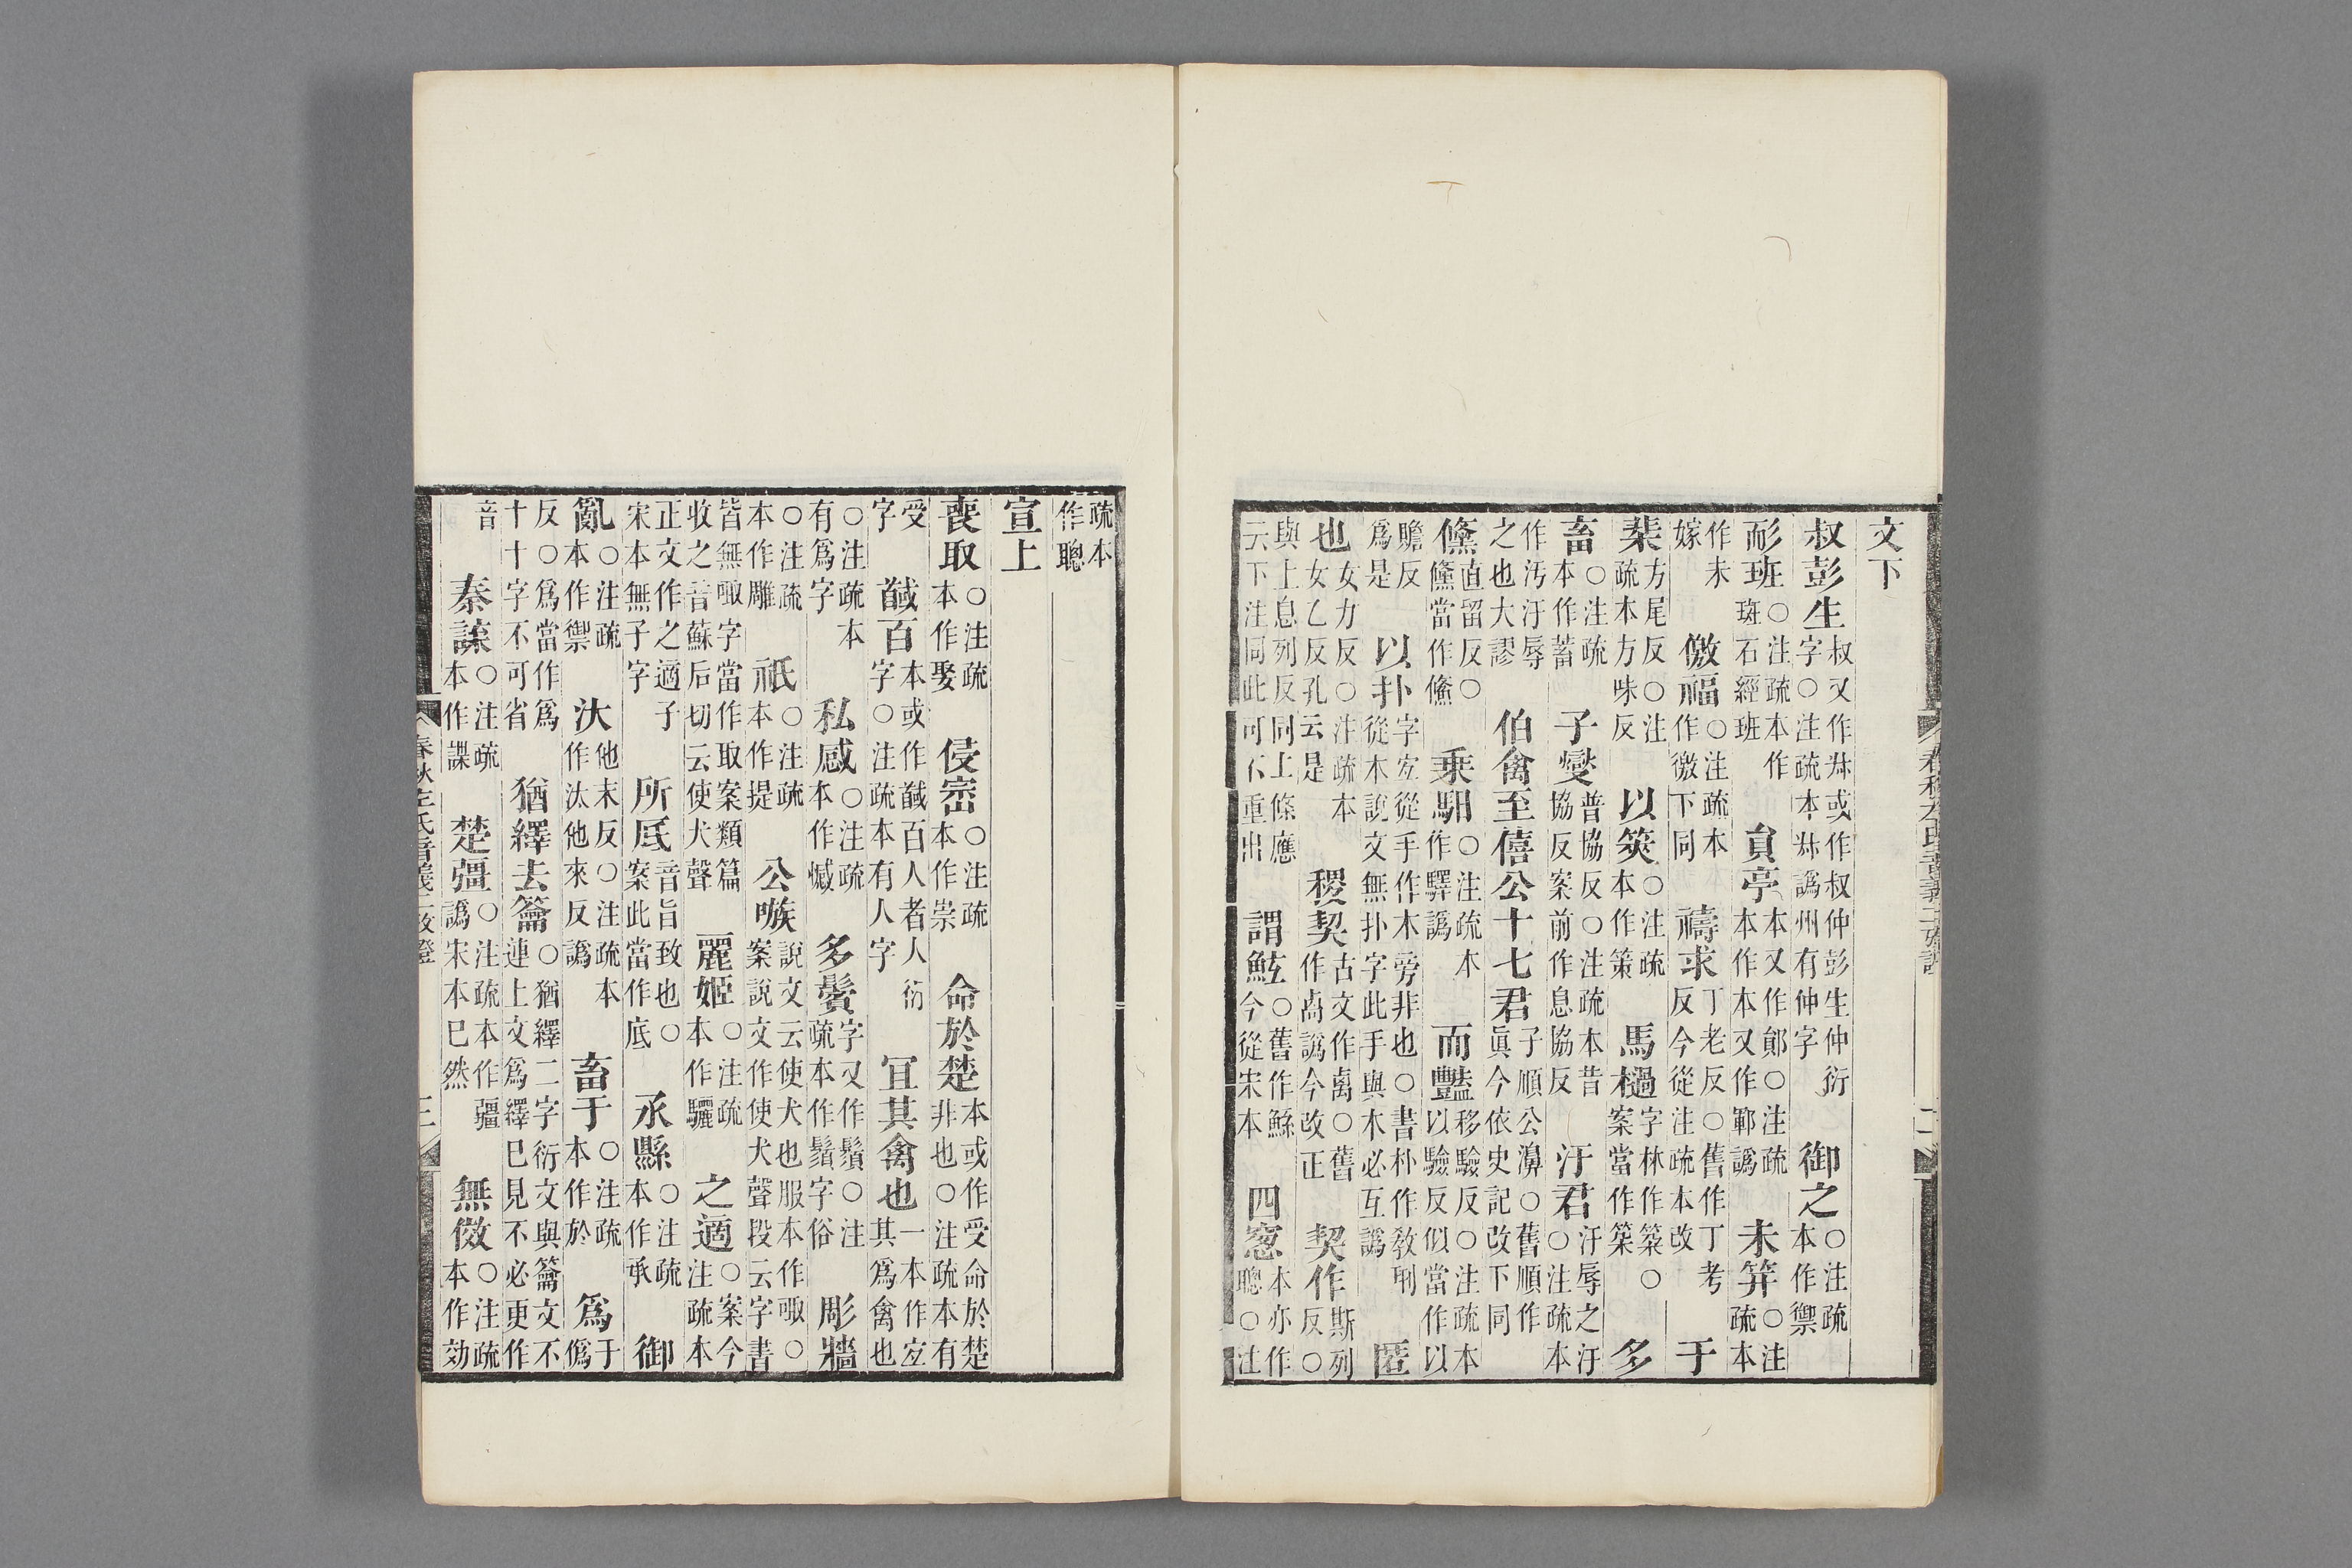 文下
叔彭生叔又作𡬶或作叔仲彭生仲衍字○注疏本𡬶譌州有仲字 御之○注疏本作禦
耏班○注疏本作斑石經班 貟亭本又作鄖○注疏本作本又作鄆譌 未笄○注疏本
作未嫁 儌福○注疏本作徼下同 禱求丁老反○舊作丁考反今從注疏本改 于
棐方尾反○注疏本方味反 以筴○注疏本作策 馬檛字林作簻○案當作築 多
畜○注疏本作蓄 子燮普協反○注疏本昔協反案前作息協反 汙君汙辱之汙○注疏本
作汚汙辱之也大謬 伯禽至僖公十七君子順公濞○舊順作眞今依史記改下同
儵直留反○儵當作鯈 乗馹○注疏本作驛譌 而豔移驗反○注疏本以驗反似當作以
贍反爲是 以扑字宐從手作木旁非也○書朴作敎刑從木說文無扑字此手與木必互譌 匿
也女力反○注疏本女乙反孔云是 稷契古文作卨○舊作卨譌今改正 契作斯列反○
與上息列反同上條應云下注同此可不重出 謂鮌○舊作鯀今從宋本 四窓本亦作聰○注
春秋左氏音義二攷證 二
疏本作聰
宣上
喪取○注疏本作娶 侵崈○注疏本作崇 命於楚本或作受命於楚非也○注疏本有
受字 馘百本或作馘百人者人衍字○注疏本有人字 冝其禽也一本作宐其爲禽也
○注疏本有爲字 私慼○注疏本作慽 多鬚字又作鬢○注疏本作鬚字俗 彫牆
○注疏本作雕 祇○注疏本作提 公嗾說文云使犬也服本作㖩○案說文作使犬聲段云字書
皆無㖩字當作取案類篇收之音蘇后切云使犬聲 麗姬○注疏本作驪 之適○案今注疏本
正文作之適子宋本無子字 所厎音旨致也○案此當作底 氶縣○注疏本作承 御
亂○注疏本作禦 汏他末反○注疏本作汰他來反譌 畜于○注疏本作於 爲于僞
反○爲當作爲十十字不可省 猶繹去籥○猶繹二字衍文與籥文不連上文爲繹巳見不必更作
音 秦諜○注疏本作諜 楚彊○注疏本作疆譌宋本巳然 無儌○注疏本作効
春秋左氏音義二攷證 三